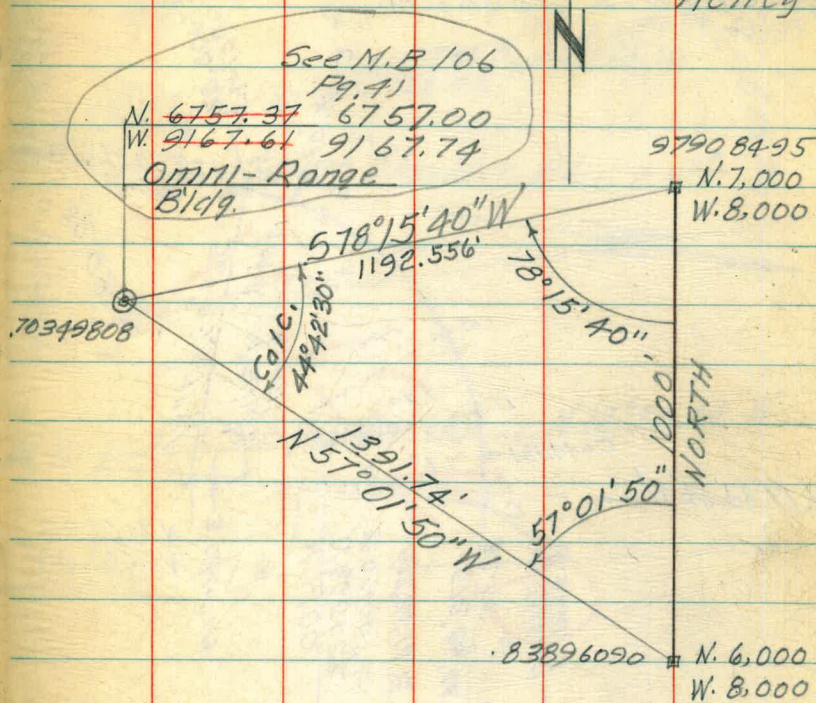 N
See M.B 106
Pg. 41
N. 6757.37 6757.00
W. 9167.61 9167.74
Omni-Range
Bldg.
97908495
N. 7,000
W. 8,000
S78°15'40"W
1192.556'
78°15'40"
.70349808
Calc.
44°42'30"
1000'
NORTH
1391.74'
N57°01'50"W
57°01'50"
.83896090
N. 6,000
W. 8,000